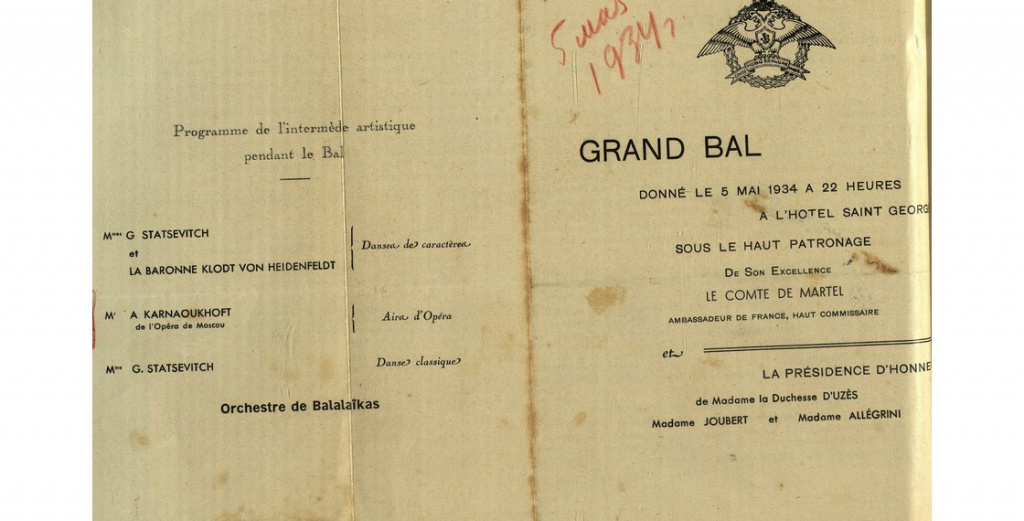 Programme de l'intermède artistique
pendant le Bal
Mmes G STATSEVITCH
et
LA BARONNE KLODT VON HEIDENFELDT
Danses de caractères
Mr A KARNAOUKHOFT
de l'Opéra de Moscou
Airs d'Opéra
Mme G. STATSEVITCH
Danse classique
Orchestre de Balalaïkas
5
1934
GRAND BAL
DONNÉ LE 5 MAI 1934 A 22 HEURES
A L'HOTEL SAINT GEORG
SOUS LE HAUT PATRONAGE
DE SON EXCELLENCE
LE COMTE DE MARTEL
AMBASSADEUR DE FRANCE, HAUT COMMISSAIRE
et
LA PRÉSIDENCE D'HONNE
de Madame la Duchesse D'UZÈS
Madame JOUBERT et Madame ALLÉGRINI